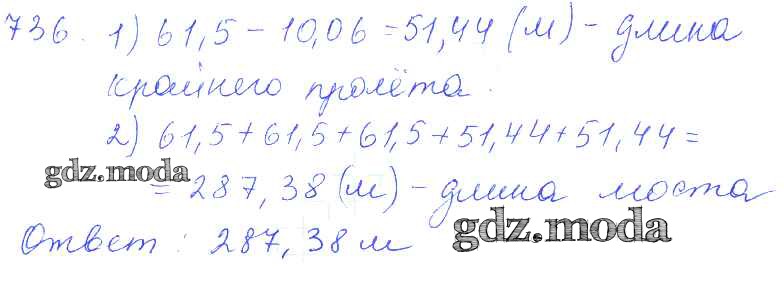 736. 1) 61,5 - 10,06 = 51,44 (м) - длина
крайнего пролёта.
2) 61,5 + 61,5 + 61,5 + 51,44 + 51,44 =
gdz.moda
= 287,38 (м) - длина моста
Ответ: 287,38 м
gdz.moda